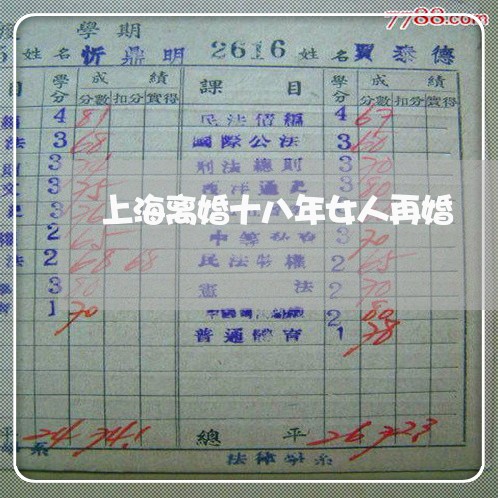 7788.com
學期
姓名 忻鼎明 2616 姓名 賈泰德
目 學分 成績 課目 學分 成績
分數 扣分 實得 分數 扣分 實得
4 81 民法債編 4 67
法 3 68 國際公法 3 60
3 刑法總則 3 70
3 75 西洋通史 3 80
上海离婚十八年女人再婚
2 65 3 70
法 2 68 68 民法物權 2 65
3 80 憲法 2 70
1 70 2 80
普通體育 1 78
平 24 74.1 總平 26 72.3
系 法律學系